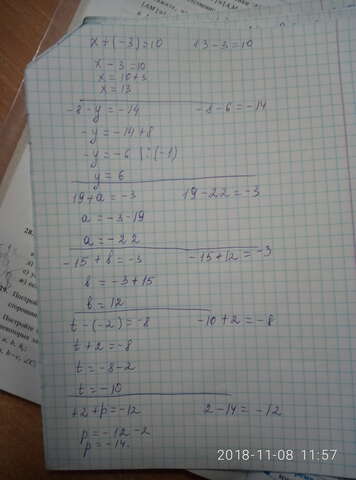 x + (-3) = 10    13 - 3 = 10
x - 3 = 10
x = 10 + 3
x = 13
-8 - y = -14    -8 - 6 = -14
-y = -14 + 8
-y = -6 | : (-1)
y = 6
19 + a = -3    19 - 22 = -3
a = -3 - 19
a = -22
-15 + b = -3    -15 + 12 = -3
b = -3 + 15
b = 12
t - (-2) = -8    -10 + 2 = -8
t + 2 = -8
t = -8 - 2
t = -10
+2 + p = -12    2 - 14 = -12
p = -12 - 2
p = -14.
2018-11-08 11:57